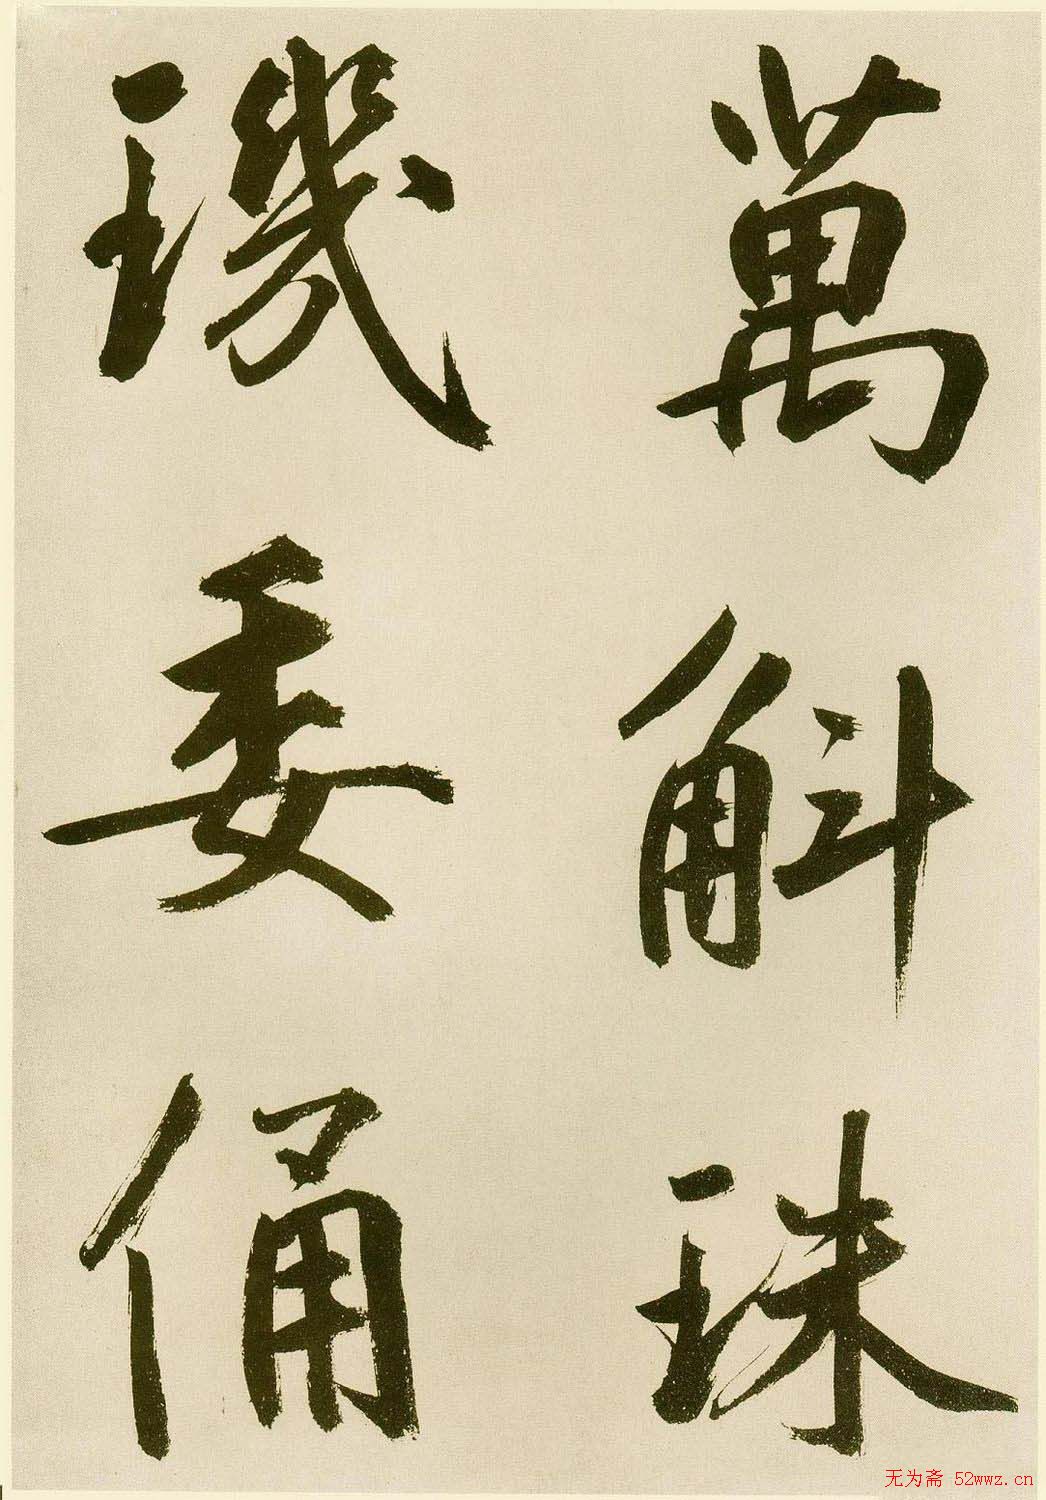 萬斛珠
璣委俑
无为斋 52wwz.cn